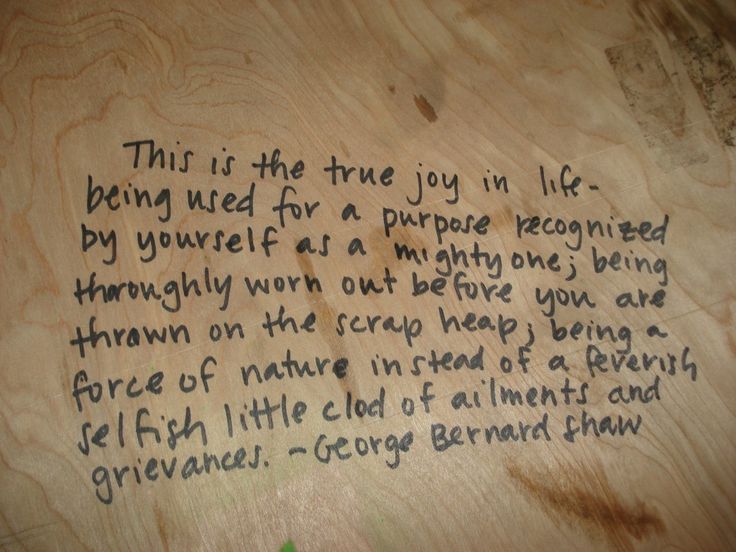 This is the true joy in life-
being used for a purpose recognized
by yourself as a mighty one; being
thoroughly worn out before you are
thrown on the scrap heap; being a
force of nature instead of a feverish
selfish little clod of ailments and
grievances. -George Bernard Shaw